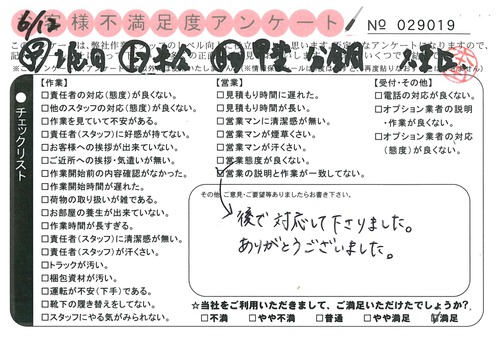 6/12
様不満足度アンケート
No 029019
チェックリスト
【作業】
□責任者の対応(態度)が良くない。
□他のスタッフの対応(態度)が良くない。
□作業を見ていて不安がある。
□責任者(スタッフ)に好感が持てない。
□お客様への挨拶が出来ていない。
□ご近所への挨拶・気遣いが無い。
□作業開始前の内容確認がなかった。
□作業開始時間が遅れた。
□荷物の取り扱いが雑である。
□お部屋の養生が出来ていない。
□作業時間が長すぎる。
□責任者(スタッフ)に清潔感が無い。
□責任者(スタッフ)が汗くさい。
□トラックが汚い。
□梱包資材が汚い。
□運転が不安(下手)である。
□靴下の履き替えをしてない。
□スタッフにやる気がみられない。
【営業】
□見積もり時間に遅れた。
□見積もり時間が長い。
□営業マンに清潔感が無い。
□営業マンが煙草くさい。
□営業マンが汗くさい。
□営業態度が良くない。
営業の説明と作業が一致してない。
【受付・その他】
□電話の対応が良くない。
□オプション業者の説明
・作業が良くない。
□オプション業者の対応
(態度)が良くない。
その他、ご意見・ご要望等ありましたらお書き下さい。
後で対応して下さりました。
ありがとうございました。
☆当社をご利用いただきまして、ご満足いただけたでしょうか?
□不満 □やや不満 □普通 □やや満足 満足